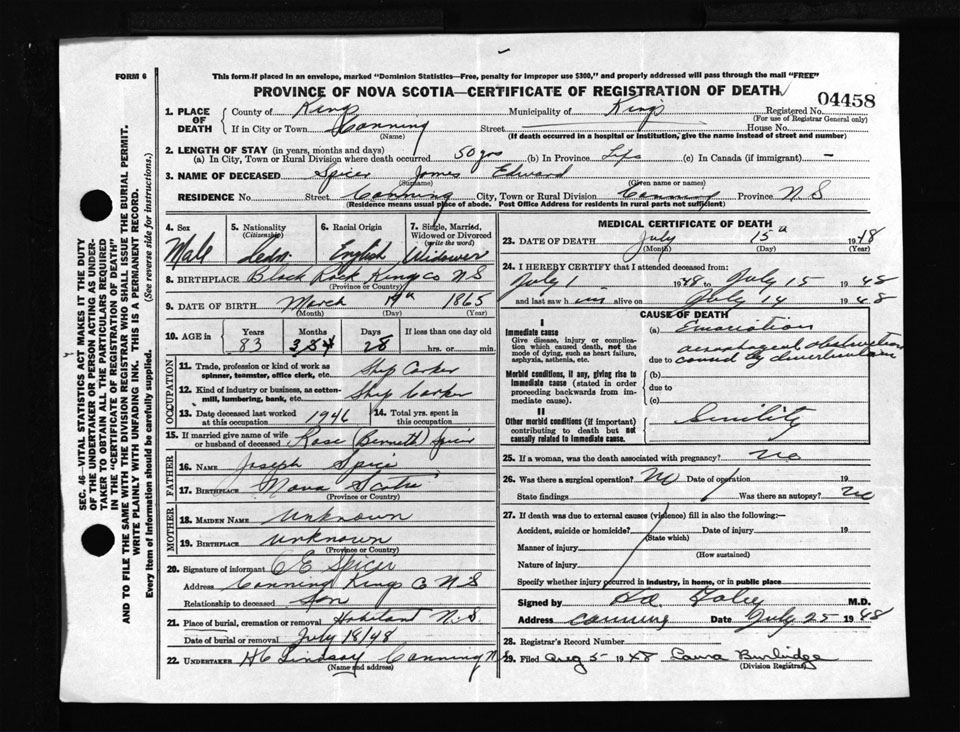 FORM 6
This form if placed in an envelope, marked "Dominion Statistics—Free, penalty for improper use $300," and properly addressed will pass through the mail "FREE"
PROVINCE OF NOVA SCOTIA—CERTIFICATE OF REGISTRATION OF DEATH
04458
1. PLACE OF DEATH County of Kings Municipality of Kings Registered No.
(For use of Registrar General only)
If in City or Town Canning Street House No.
(Name) (If death occurred in a hospital or institution, give the name instead of street and number)
2. LENGTH OF STAY (in years, months and days)
(a) In City, Town or Rural Division where death occurred 50 yrs (b) In Province Life (c) In Canada (if immigrant) —
3. NAME OF DECEASED Spicer James Edward
(Surname) (Given name or names)
RESIDENCE No. Street Canning City, Town or Rural Division Canning Province N.S
(Residence means usual place of abode. Post Office Address for residents in rural parts not sufficient)
4. Sex Male
5. Nationality (Citizenship) Cedn.
6. Racial Origin English
7. Single, Married, Widowed or Divorced (write the word) Widower
8. BIRTHPLACE Black Rock Kings Co N S
(Province or Country)
9. DATE OF BIRTH March 1865
(Month) (Day) (Year)
10. AGE in Years 83 Months 3 Days 28 If less than one day old hrs. or min.
OCCUPATION
11. Trade, profession or kind of work as spinner, teamster, office clerk, etc. Ship Corker
12. Kind of industry or business, as cotton-mill, lumbering, bank, etc. Ship Corker
13. Date deceased last worked at this occupation 1946
14. Total yrs. spent in this occupation
15. If married give name of wife or husband of deceased Rose (Bennett) Spicer
FATHER
16. NAME Joseph Spicer
17. BIRTHPLACE Nova Scotia
(Province or Country)
MOTHER
18. MAIDEN NAME Unknown
19. BIRTHPLACE Unknown
(Province or Country)
20. Signature of informant C E Spicer
Address Canning Kings Co N S
Relationship to deceased Son
21. Place of burial, cremation or removal N.S.
Date of burial or removal July 18/48
22. UNDERTAKER H C Lindsay Canning N S
(Name and address)
MEDICAL CERTIFICATE OF DEATH
23. DATE OF DEATH July 15th 1948
(Month) (Day) (Year)
24. I HEREBY CERTIFY that I attended deceased from:
July 1 1948 to July 15 1948
and last saw him alive on July 14 1948
CAUSE OF DEATH
I
Immediate cause
Give disease, injury or complication which caused death, not the mode of dying, such as heart failure, asphyxia, asthenia, etc.
(a) Emaciation
due to oesophageal obstruction
caused by diverticulum
Morbid conditions, if any, giving rise to immediate cause (stated in order proceeding backwards from immediate cause).
(b)
due to
(c)
II
Other morbid conditions (if important) contributing to death but not causally related to immediate cause.
Senility
25. If a woman, was the death associated with pregnancy? no
26. Was there a surgical operation? No Date of operation 19
State findings Was there an autopsy? no
27. If death was due to external causes (violence) fill in also the following:—
Accident, suicide or homicide? Date of injury 19
(State which)
Manner of injury
(How sustained)
Nature of injury
Specify whether injury occurred in industry, in home, or in public place
Signed by M.D.
Address Canning Date July 25 1948
28. Registrar's Record Number
29. Filed Aug 5 1948 Laura Burbidge
(Division Registrar)
SEC. 46—VITAL STATISTICS ACT MAKES IT THE DUTY
OF THE UNDERTAKER OR PERSON ACTING AS UNDER-
TAKER TO OBTAIN ALL THE PARTICULARS REQUIRED
IN THE "CERTIFICATE OF REGISTRATION OF DEATH"
AND TO FILE THE SAME WITH THE DIVISION REGISTRAR WHO SHALL ISSUE THE BURIAL PERMIT.
WRITE PLAINLY WITH UNFADING INK. THIS IS A PERMANENT RECORD.
Every item of information should be carefully supplied. (See reverse side for instructions.)